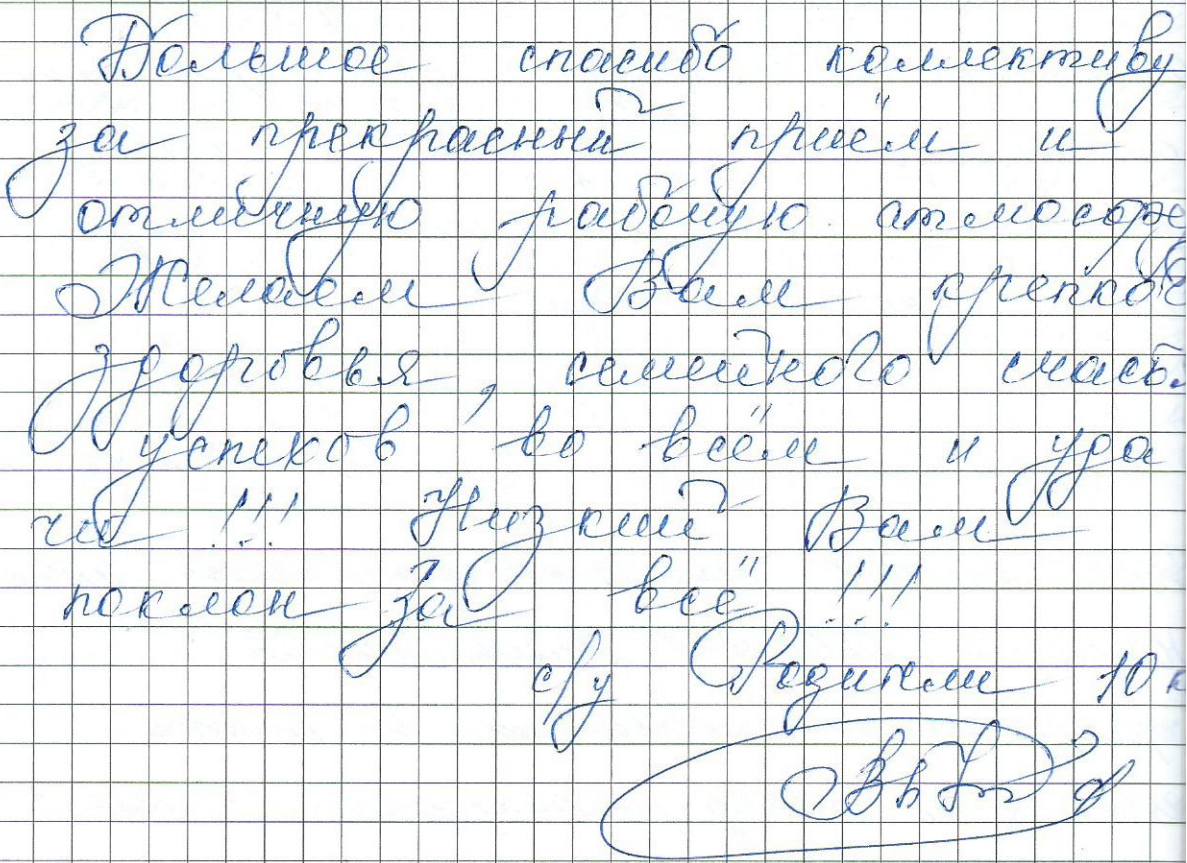 Большое спасибо коллективу
за прекрасный приём и
отличную рабочую атмосфе
Желаем Вам крепкое
здоровья, семейного счасть
успеков во всём и уда
чи !!! Низкий Вам
поклон за всё !!!
с/у Родители 10 к